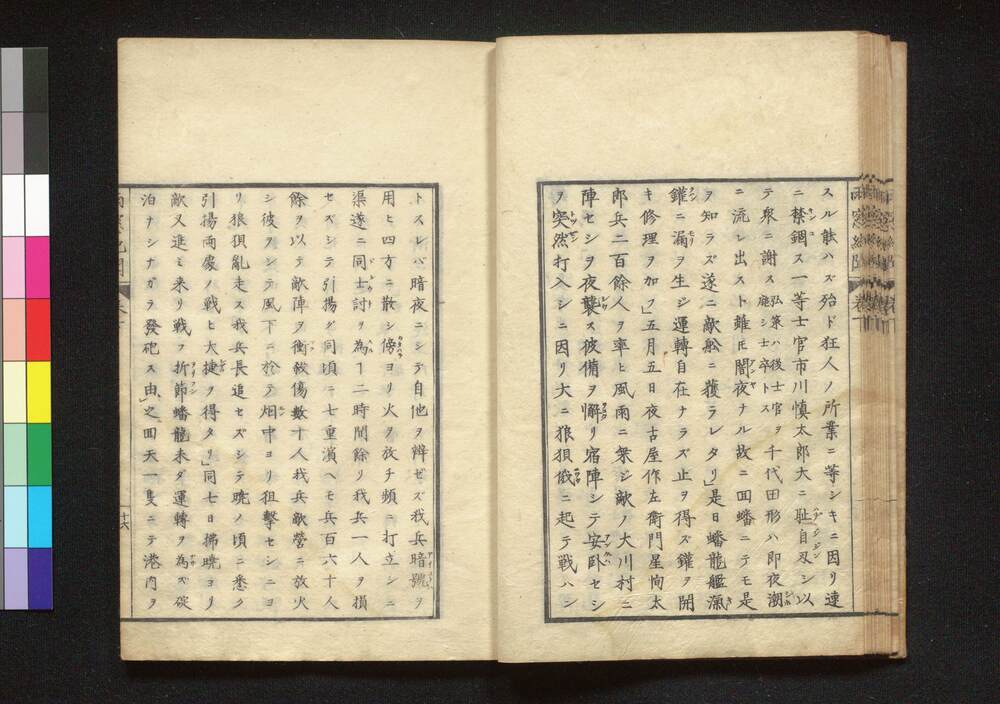 スル能ハズ殆ド狂人ノ所業ニ等シキニ因リ速
ニ禁錮ス一等士官市川慎太郎大ニ耻自刃シ以
テ衆ニ謝ス弘策ハ後士官ヲ廃シ士卒トス千代田形ハ即夜潮
ニ流レ出スト雖𪜈闇夜ナル故ニ回蟠ニテモ是
ヲ知ラズ遂ニ敵舩ニ獲ラレタリ」是日蟠龍艦滊
鑵ニ漏ヲ生シ運轉自在ナラズ止ヲ得ズ鑵ヲ開
キ修理ヲ加フ」五月五日夜古屋作左衛門星恂太
郎兵二百餘人ヲ率ヒ風雨ニ乗シ敵ノ大川村ニ
陣セシヲ夜襲ス彼備ヲ懈リ宿陣シテ安卧セシ
ヲ突然打入シニ因リ大ニ狼狽俄ニ起テ戦ハン
トスレバ暗夜ニシテ自他ヲ辨ゼズ我兵暗號ヲ
用ヒ四方ニ散シ傍ヨリ火ヲ放チ頻ニ打立シニ
渠遂ニ同士討ヲ為ヿ二時間餘リ我兵一人ヲ損
セズシテ引揚グ同頃ニ七重濱ヘモ兵百六十人
餘ヲ以テ敵陣ヲ衝殺傷数十人我兵敵營ニ放火
シ彼ヲシテ風下ニ於テ烟中ヨリ狙擊セシニヨ
リ狼狽亂走ス我兵長追セズシテ暁ノ頃ニ悉ク
引揚両處ノ戦ヒ大捷ヲ得タリ」同七日拂暁ヨリ
敵又進ミ来リ戦フ折節蟠龍未ダ運轉ヲ為ズ碇
泊ナシナガラ發砲ス由之回天一隻ニテ港内ヲ
十六